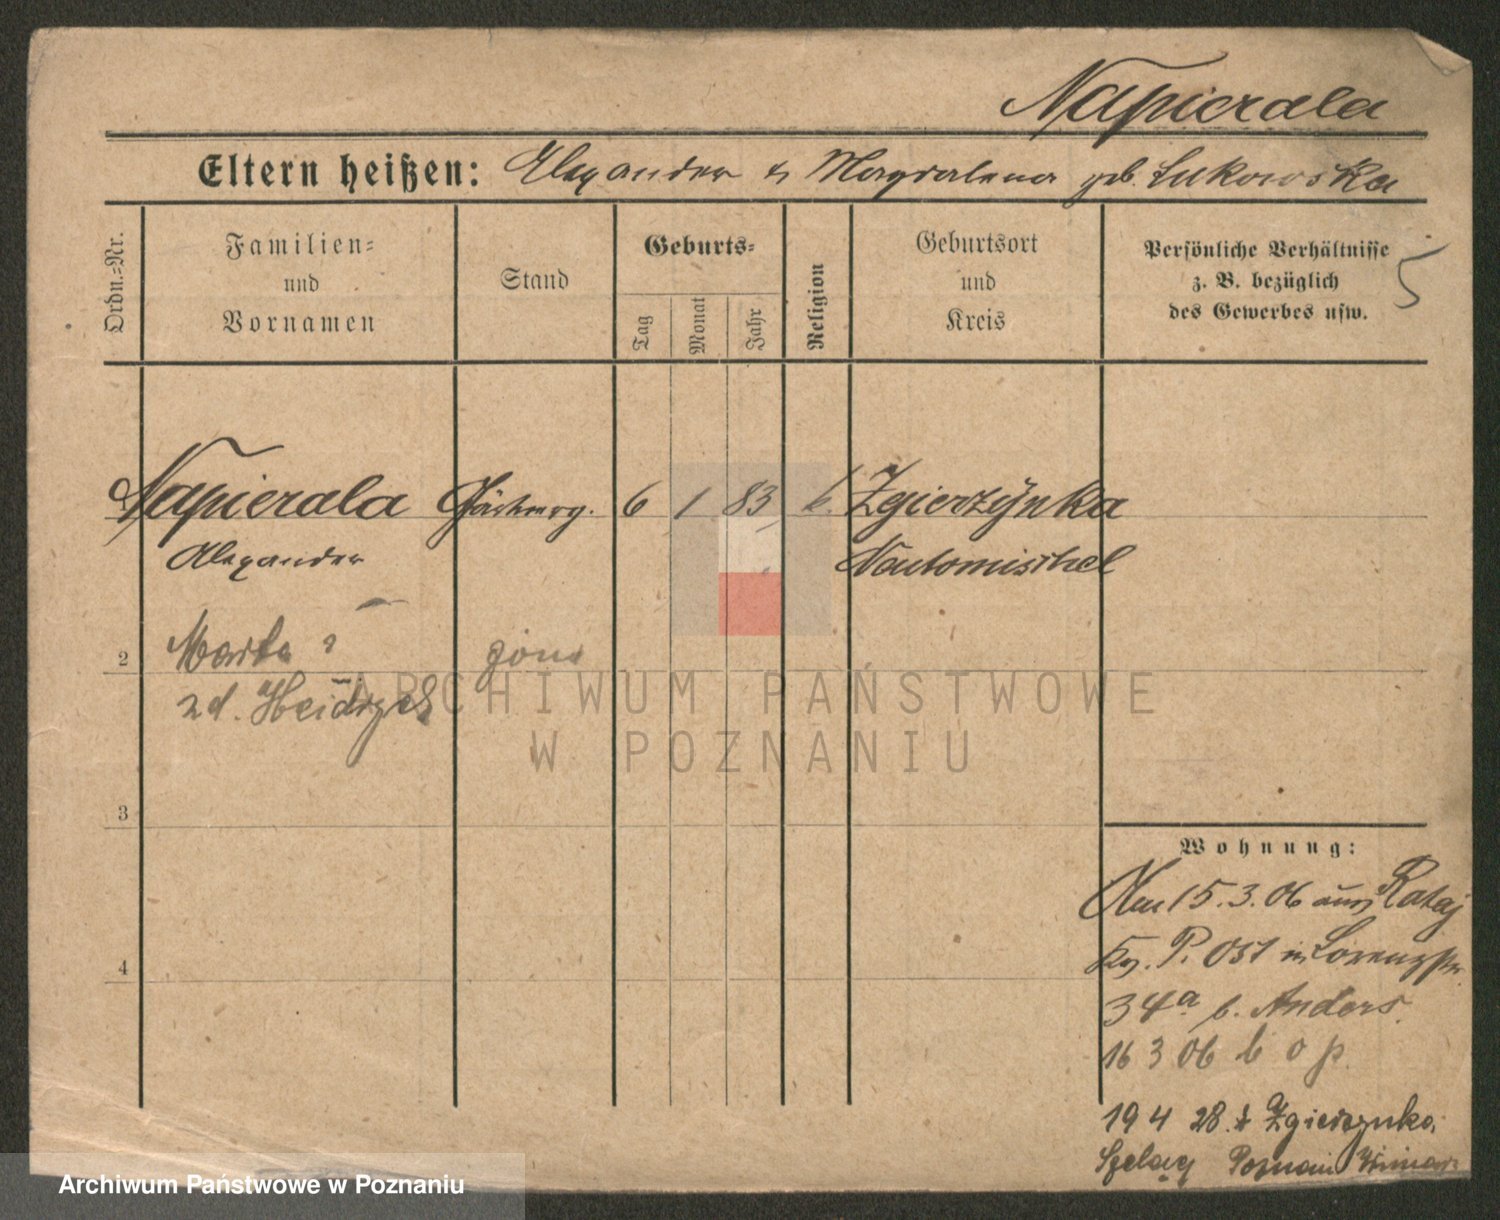 Napierala
Eltern heißen: Alexander & Magdalena geb. Lukowska
Ordn.=Nr.
Familien=
und
Vornamen
Stand
Geburts=
Tag
Monat
Jahr
Religion
Geburtsort
und
Kreis
Persönliche Verhältnisse
z. B. bezüglich
des Gewerbes usw.
5
Napierala 6 1 83 k. Zgierzynka
Alexander
2 Marta żona
zd.
3
4
Wohnung:
15.3.06 aus Rataj
P. Ost in Lorenzstr.
34a b. Anders.
16 3 06 b o p.
19 4 28. Zgierzynka,
Szeląg Poznań
ARCHIWUM PAŃSTWOWE
W POZNANIU
Archiwum Państwowe w Poznaniu